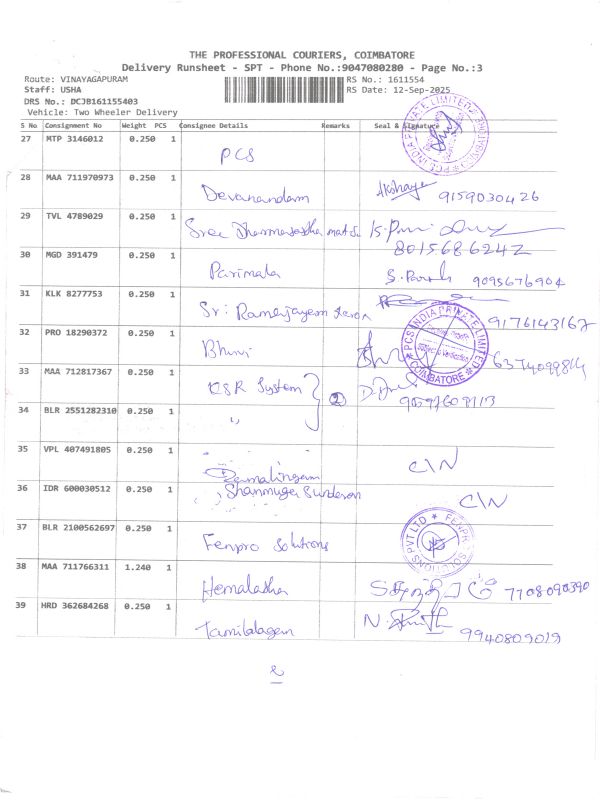 THE PROFESSIONAL COURIERS, COIMBATORE
Delivery Runsheet - SPT - Phone No.:9047080280 - Page No.:3
Route: VINAYAGAPURAM RS No.: 1611554
Staff: USHA RS Date: 12-Sep-2025
DRS No.: DCJB161155403
Vehicle: Two Wheeler Delivery
S No Consignment No Weight PCS Consignee Details Remarks Seal & Signature
27 MTP 3146012 0.250 1
PCS
28 MAA 711970973 0.250 1
Devanandam Akshaya 9159030426
29 TVL 4789029 0.250 1
Sree
8015686242
30 MGD 391479 0.250 1
Parimala 9095676904
31 KLK 8277753 0.250 1
Sri Ramajayam
9176143167
32 PRO 18290372 0.250 1
PCS INDIA PRIVATE LIMITED COIMBATORE
33 MAA 712817367 0.250 1
KSR System 2
34 BLR 2551282310 0.250 1
"
35 VPL 407491805 0.250 1
C/N
36 IDR 600030512 0.250 1
Shanmuga Sundaran C/N
37 BLR 2100562697 0.250 1
Fenpro Solutions FENPRO SOLUTIONS PVT LTD
38 MAA 711766311 1.240 1
Hemalatha 7708090390
39 HRD 362684268 0.250 1
Tamilalagan 9940809019